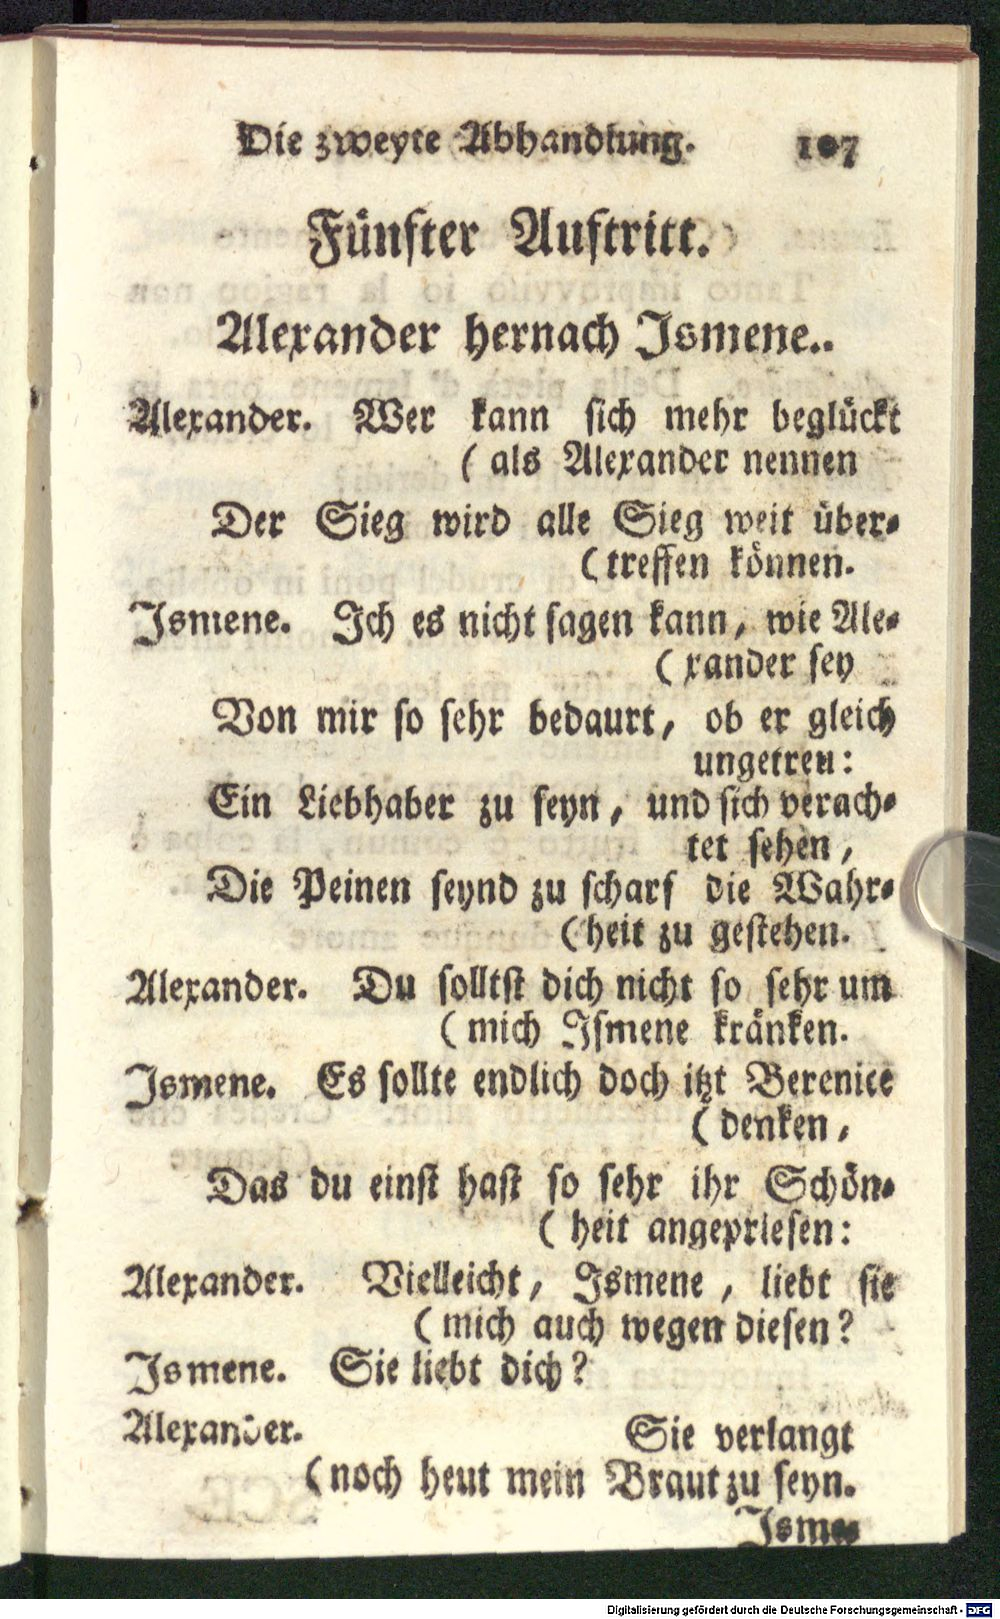 Die zweyte Abhandlung. 107
Fünfter Auftritt.
Alexander hernach Ismene..
Alexander. Wer kann sich mehr beglückt
( als Alexander nennen
Der Sieg wird alle Sieg weit über-
( treffen können.
Ismene. Ich es nicht sagen kann, wie Ale-
( xander sey
Von mir so sehr bedaurt, ob er gleich
ungetreu:
Ein Liebhaber zu seyn, und sich verach-
tet sehen,
Die Peinen seynd zu scharf die Wahr-
( heit zu gestehen.
Alexander. Du solltst dich nicht so sehr um
( mich Ismene kränken.
Ismene. Es sollte endlich doch itzt Berenice
( denken,
Das du einst hast so sehr ihr Schön-
( heit angepriesen:
Alexander. Vielleicht, Ismene, liebt sie
( mich auch wegen diesen?
Ismene. Sie liebt dich?
Alexander. Sie verlangt
( noch heut mein Braut zu seyn.
Isme-
Digitalisierung gefördert durch die Deutsche Forschungsgemeinschaft - DFG